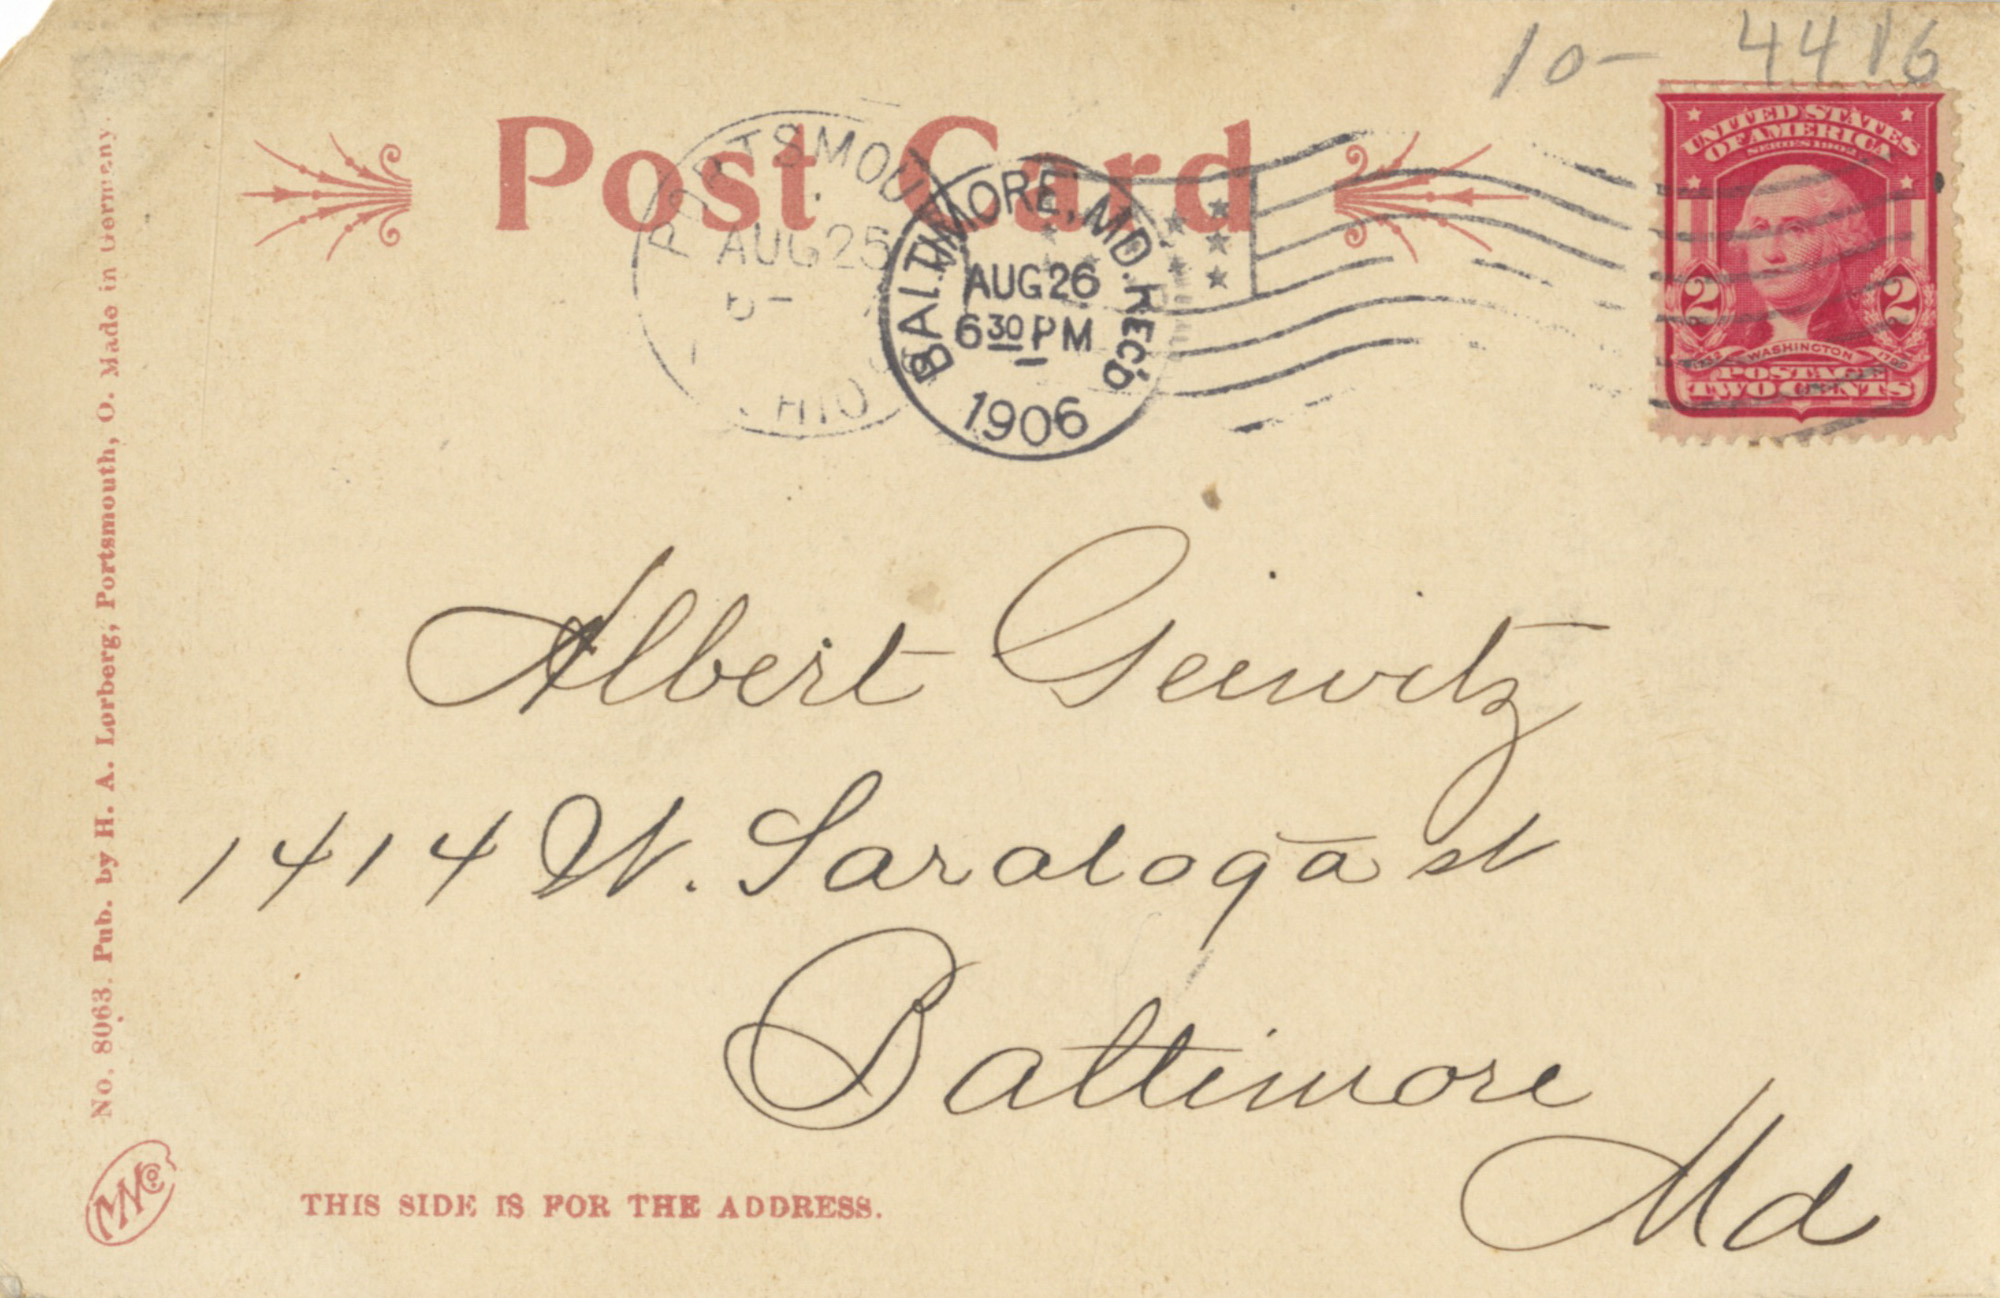 10- 4416
Post Card
PORTSMOU
AUG 25
OHIO
BALTIMORE, MD. REC'D
AUG 26
6 30 PM
1906
UNITED STATES
OF AMERICA
SERIES 1902
2 2
WASHINGTON
POSTAGE
TWO CENTS
Albert Geiwitz
1414 W. Saratoga st
Baltimore
Md
THIS SIDE IS FOR THE ADDRESS.
No. 8063. Pub. by H. A. Lorberg, Portsmouth, O. Made in Germany.